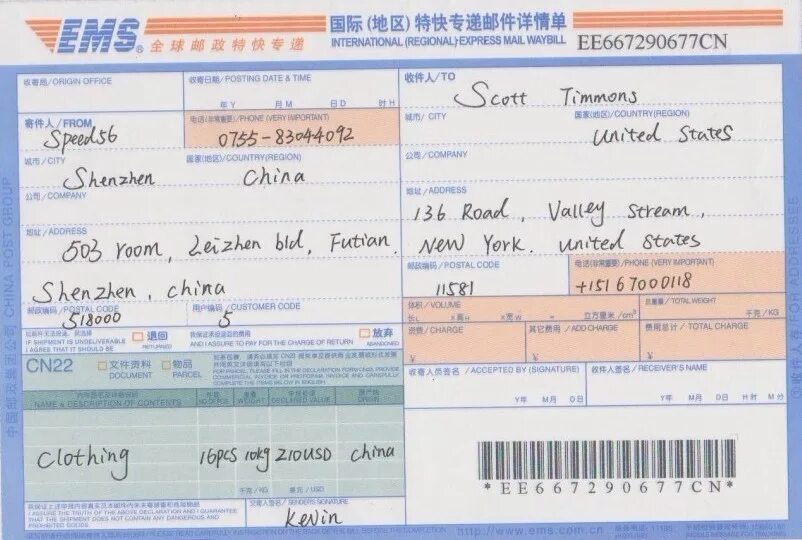 EMS® 全球邮政特快专递
国际（地区）特快专递邮件详情单
INTERNATIONAL (REGIONAL) EXPRESS MAIL WAYBILL
EE667290677CN
收寄局/ORIGIN OFFICE
收寄日期/POSTING DATE & TIME
年Y 月M 日D 时H
寄件人/FROM
Speed56
电话(非常重要)/PHONE (VERY IMPORTANT)
0755-83044092
城市/CITY
国家(地区)/COUNTRY(REGION)
Shenzhen China
公司/COMPANY
地址/ADDRESS
503 room, Leizhen bld, Futian.
Shenzhen, china
邮政编码/POSTAL CODE
518000
用户编码/CUSTOMER CODE
5
收件人/TO
Scott Timmons
城市/CITY
国家(地区)/COUNTRY(REGION)
United States
公司/COMPANY
地址/ADDRESS
136 Road, Valley Stream,
New York. United States
邮政编码/POSTAL CODE
11581
电话(非常重要)/PHONE (VERY IMPORTANT)
+15167000118
体积/VOLUME
长L ×高H ×宽W = 立方厘米/cm³
总重量/TOTAL WEIGHT
千克/KG
资费/CHARGE
¥
其它费用/ADD CHARGE
¥
费用总计/TOTAL CHARGE
¥
IF SHIPMENT IS UNDELIVERABLE
I AGREE THAT IT SHOULD BE
退回
RETURNED
我保证承运退回的费用
AND I ASSURE TO PAY FOR THE CHARGE OF RETURN
放弃
ABANDONED
CN22
文件资料
DOCUMENT
物品
PARCEL
NAME & DESCRIPTION OF CONTENTS
件数
NO.OF PCS
重量
WEIGHT
DECLARED VALUE
原产地
ORIGIN
Clothing 16pcs 10kg 210USD China
千克/KG
美元/USD
收寄人员签名/ACCEPTED BY (SIGNATURE)
年Y 月M 日D
收件人签名/RECEIVER'S NAME
年Y 月M 日D 时H 分M
*EE667290677CN*
I ASSURE THE TRUTH OF THE ABOVE DECLARATION AND I GUARANTEE
THAT THE SHIPMENT DOES NOT CONTAIN ANY DANGEROUS AND
交寄人签名/SENDER'S SIGNATURE
Kevin
http://www.ems.com.cn
CHINA POST GROUP
中国邮政集团公司